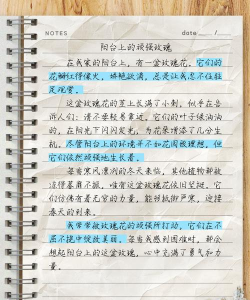 NOTES
date
阳台上的顽强玫瑰
在我家的阳台上，有一盆玫瑰花，它们的
花瓣红得像火，娇艳欲滴，总是让我忍不住驻
足观赏。
这盆玫瑰花的茎上长满了小刺，似乎在告
诉人们：请不要轻易靠近。它们的叶子绿油油
的，在阳光下闪闪发光，为花朵增添了几分生
机。尽管阳台上的环境并不如花园般理想，但
它们依然顽强地生长着。
每当寒风凛冽的冬天来临，其他植物都被
冻得萎靡不振，唯有这盆玫瑰花依旧坚挺。它
们仿佛有着无穷的力量，能够抵御严寒，迎接
春天的到来。
我常常被玫瑰花的顽强所打动，它们在不
屈不挠中绽放美丽。每当我感到困难时，都会
想起阳台上的这盆玫瑰，心中充满了勇气和力
量。